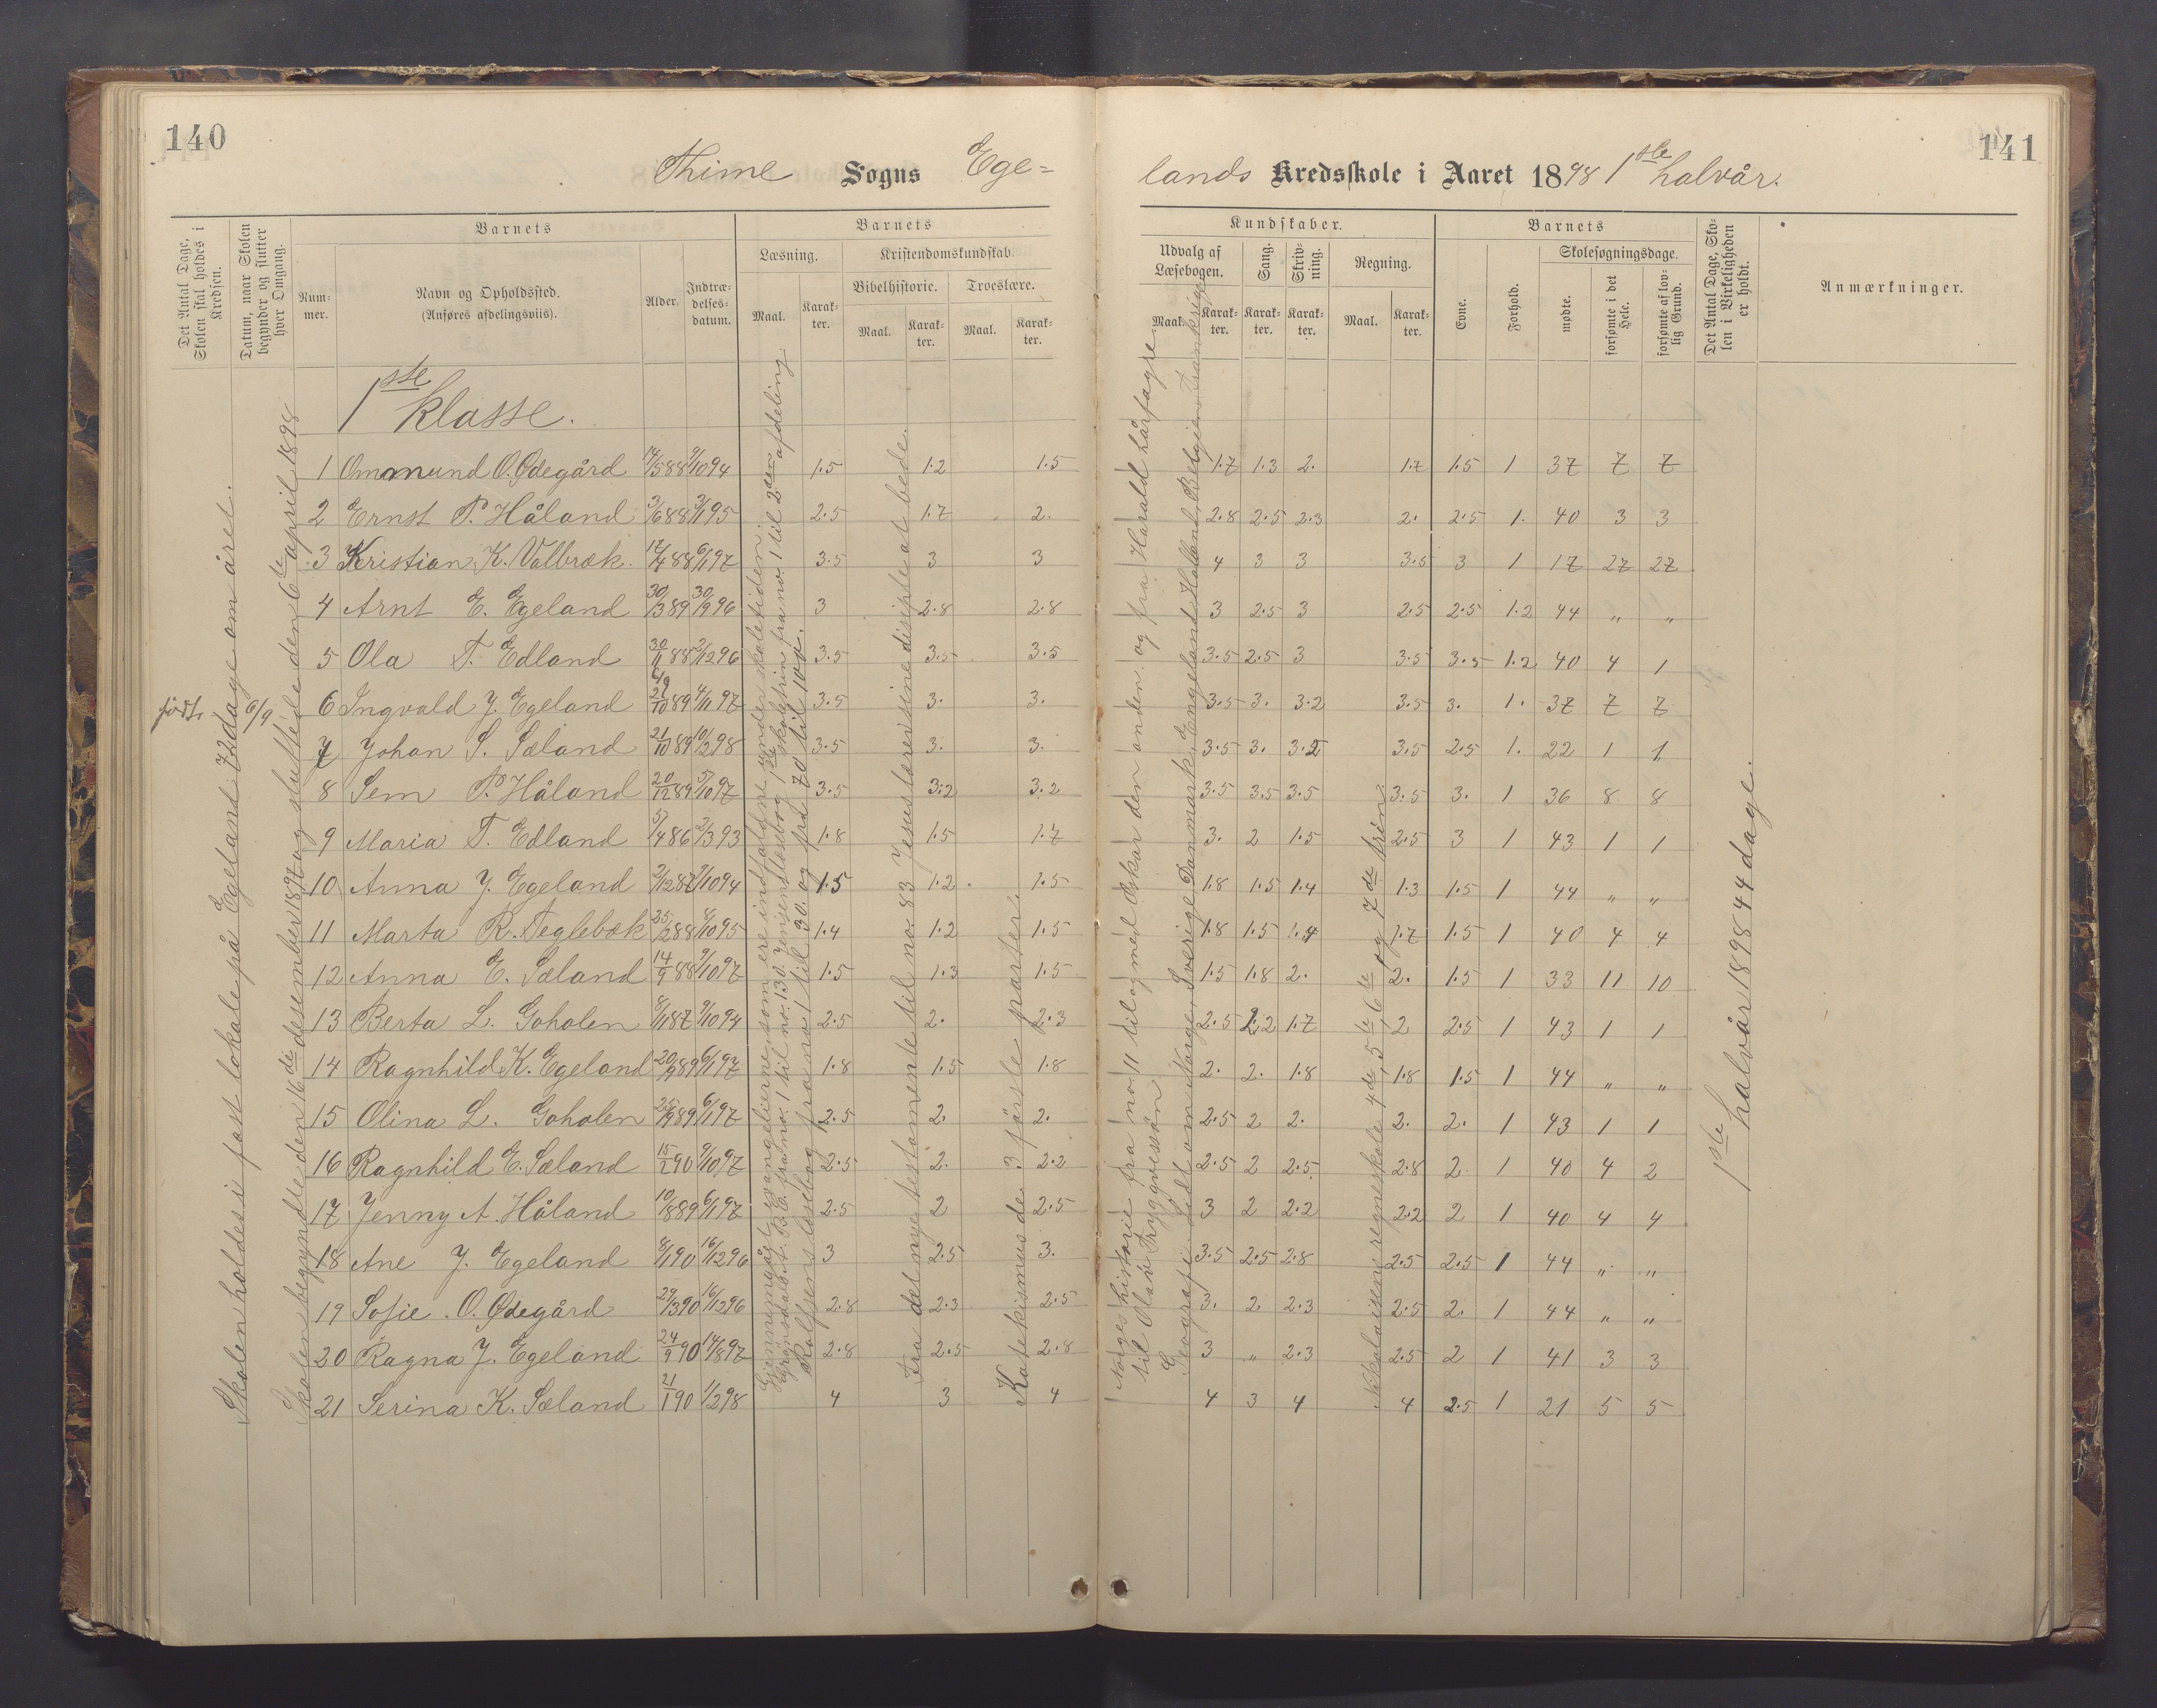 140
Thime Sogns Ege=
Det Antal Dage, Skolen skal holdes i Kredsen.
Datum, naar Skolen begynder og slutter hver Omgang.
Barnets
Nummer.
Navn og Opholdssted.
(Anføres afdelingsviis).
Alder.
Indtrædelsesdatum.
Barnets
Læsning.
Maal.
Karakter.
Kristendomskundskab.
Bibelhistorie.
Maal.
Karakter.
Troeslære.
Maal.
Karakter.
Skolen holdes i fast lokale på Egeland 72 dage om året.
Skolen begyndte den 16de desember 1897 og sluttede den 6te april 1898
født 6/9
1ste klasse.
1 Ommund O. Ødegård 14/5 88 9/10 94 1.5 1.2 1.5
2 Ernst P. Håland 3/6 88 3/1 95 2.5 1.7 2.
3 Kristian K. Valbræk. 17/4 88 6/1 97 3.5 3 3
4 Arnt E. Egeland 30/3 89 30/9 96 3 2.8 2.8
5 Ola T. Edland 30/11 88 2/12 96 3.5 3.5 3.5
6 Ingvald J. Egeland 21/10 89 4/11 97 3.5 3. 3.
7 Johan S. Sæland 21/10 89 10/2 98 3.5 3. 3.
8 Sem P. Håland 20/12 89 5/10 97 3.5 3.2 3.2
9 Maria T. Edland 5/4 86 2/3 93 1.8 1.5 1.7
10 Anna J. Egeland 2/12 87 9/10 94 1.5 1.2 1.5
11 Marta R. Teglebæk 25/2 88 8/10 95 1.4 1.2 1.5
12 Anna E. Sæland 14/9 88 9/10 97 1.5 1.3 1.5
13 Berta L. Goholen 8/1 87 9/10 94 2.5 2. 2.3
14 Ragnhild K. Egeland 20/9 89 6/1 97 1.8 1.5 1.8
15 Olina L. Goholen 25/9 89 6/1 97 2.5 2. 2.
16 Ragnhild E. Sæland 15/2 90 9/10 97 2.5 2. 2.2
17 Jenny A. Håland 10/8 89 6/1 97 2.5 2 2.5
18 Ane J. Egeland 8/1 90 16/12 96 3 2.5 3.
19 Sofie O. Ødegård 29/3 90 16/12 96 2.8 2.3 2.5
20 Ragna J. Egeland 24/9 90 14/8 97 2.8 2.5 2.8
21 Serina K. Sæland 21/1 90 1/2 98 4 3 4
Gjennemgåt evangelierne som ere indfaldne under skoletiden i
fra no. 1 til no. 130. Jensens læsebog, 1ste skoletrin fra no. 1 til 2den afdeling.
Rolfsens læsebog fra no. 1 til 30. og fra 70 til 100.
Fra det nye testamente til no. 83 Jesus lærer sine disiple at bede.
Katekismus de 3 første parter.
141
lands Kredsskole i Aaret 1898 1ste halvår.
Kundskaber.
Udvalg af Læsebogen.
Maal.
Karakter.
Sang.
Karakter.
Skrivning.
Karakter.
Regning.
Maal.
Karakter.
Barnets
Evne.
Forhold.
Skolesøgningsdage.
mødte.
forsømte i det Hele.
forsømte af lovlig Grund.
Det Antal Dage, Skolen i Virkeligheden er holdt.
Anmærkninger.
1.7 1.3 2. 1.7 1.5 1 37 7 7
2.8 2.5 2.3 2. 2.5 1. 40 3 3
4 3 3 3.5 3 1 17 27 27
3 2.5 3 2.5 2.5 1.2 44 " "
3.5 2.5 3 3.5 3.5 1.2 40 4 1
3.5 3. 3.2 3.5 3. 1. 37 7 7
3.5 3. 3.2 3.5 2.5 1. 22 1 1
3.5 3.5 3.5 3.5 3. 1 36 8 8
3. 2 1.5 2.5 3 1 43 1 1
1.8 1.5 1.4 1.3 1.5 1 44 " "
1.8 1.5 1.4 1.7 1.5 1 40 4 4
1.5 1.8 2. 2. 1.5 1 33 11 10
2.5 2.2 1.7 2 2.5 1 43 1 1
2. 2. 1.8 1.8 1.5 1 44 " "
2.5 2 2. 2. 2. 1 43 1 1
2.5 2 2.5 2.8 2 1 40 4 2
3 2 2.2 2.2 2 1 40 4 4
3.5 2.5 2.8 2.5 2.5 1 44 " "
3. 2 2.3 2.5 2. 1 44 " "
3 " 2.3 2.5 2 1 41 3 3
4 3 4 4 2.5 1 21 5 5
Norges historie fra no. 11 til og med Oskar den anden. og fra Harald hårfagre
til Olav Tryggvessøn.
Geografi. Lidt om Norge, Sverige, Danmark, Engeland, Holland, Belgien, Frankrige
Nikolaisens regneskole 4de, 5te, 6te og 7de trin.
1ste halvår 1898 44 dage.